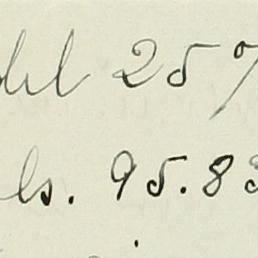 25 %
ls. 95.83